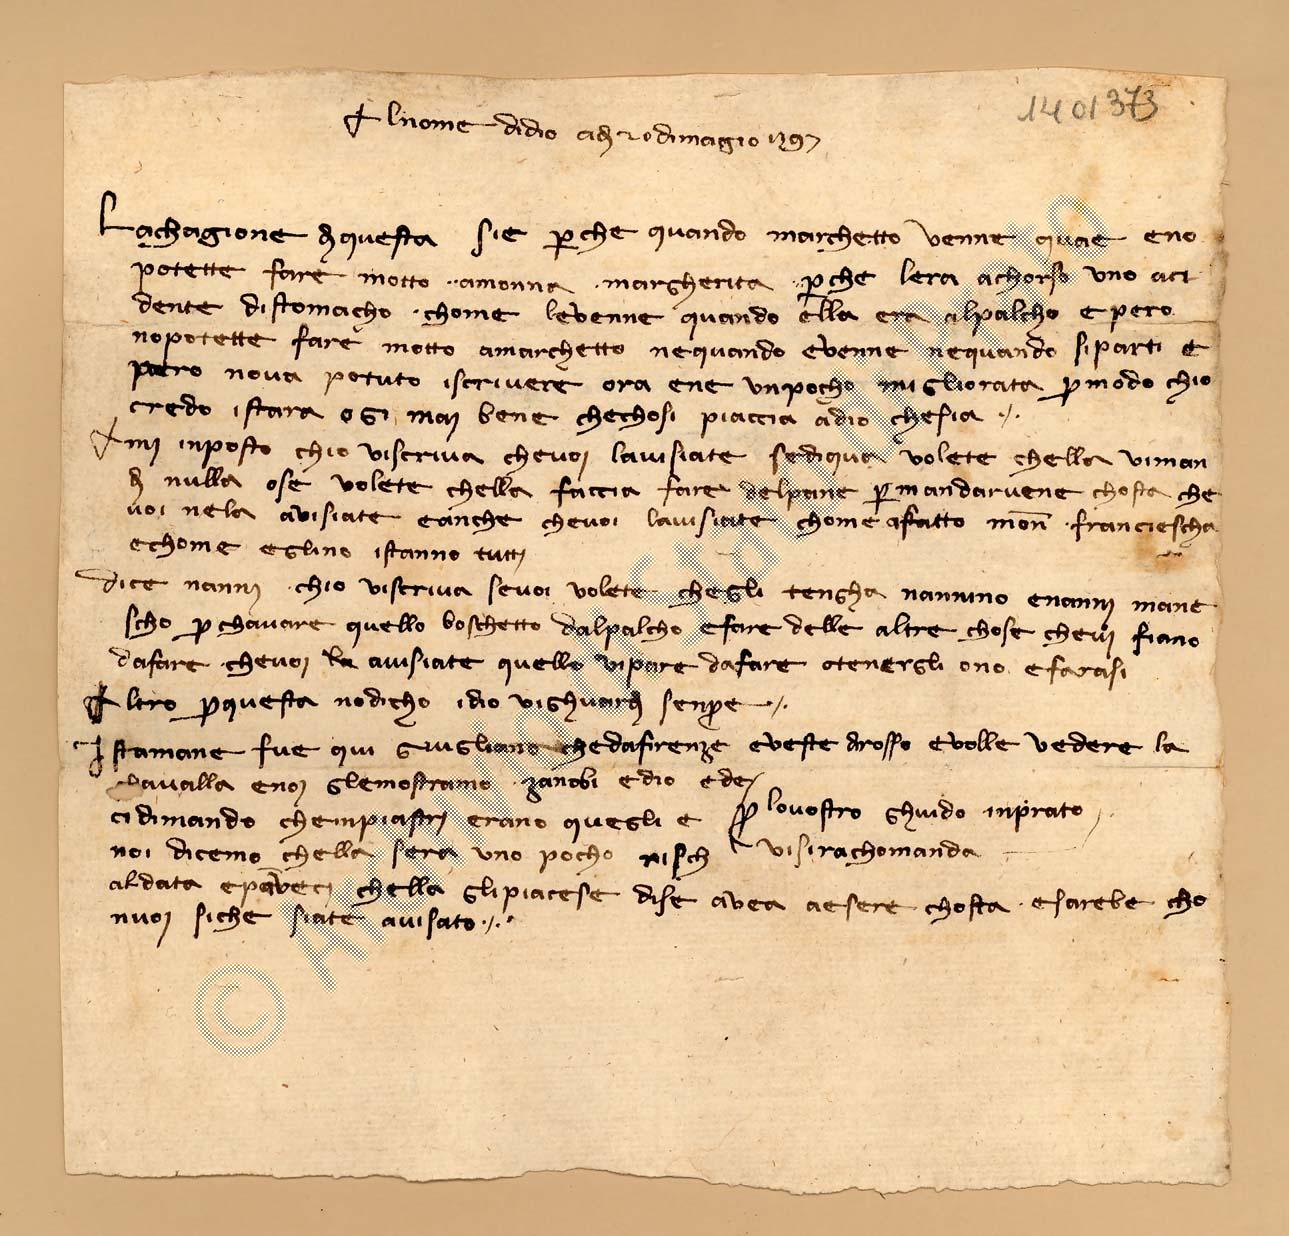 1401373
Al nome didio adi 20 dimagio 1397
Lachagione diquesta sie perche quando marchetto venne quae eno
potette fare motto amonna margherita perche lera achorso uno aci
dente distomacho chome levenne quando ella era alpalcho epero
nopotette fare motto amarchetto nequando evenne nequando siparti e
pero nova potuto iscrivere ora ene unpocho migliorata permodo chio
credo istara ogi mai bene chechosi piaccia adio chesia
E mi inposto chio viscriva chevoi lavisiate sediqua volete chella viman
di nulla ose volete chella faccia fare delpane permandarvene chosta che
voi nela avisiate eanche chevoi lavisiate chome afatto mon franciescha
echome eglino istanno tutti
dice nanni chio viscriva sevoi volete chegli tengha nannino enanni mane
scho perchavare quello boschetto dalpalcho efare delle altre chose chevi siano
dafare chevoi la avisiate quello vipare dafare otenergli ono efarasi
Altro perquesta nodicho idio vighuardi senpre
Istamane fue qui guigliano chedafirenze eveste drosso evolle vedere la
chavalla enoi glemostramo zanobi edio ede
ci dimando chenpiastri erano quegli e
noi dicemo chella sera uno pocho risch
aldata eparveci chella glipiacese dise avea aesere chosta esarebe cho
nvoi siche siate avisato
per lovostro ghuido inprato
visirachomanda